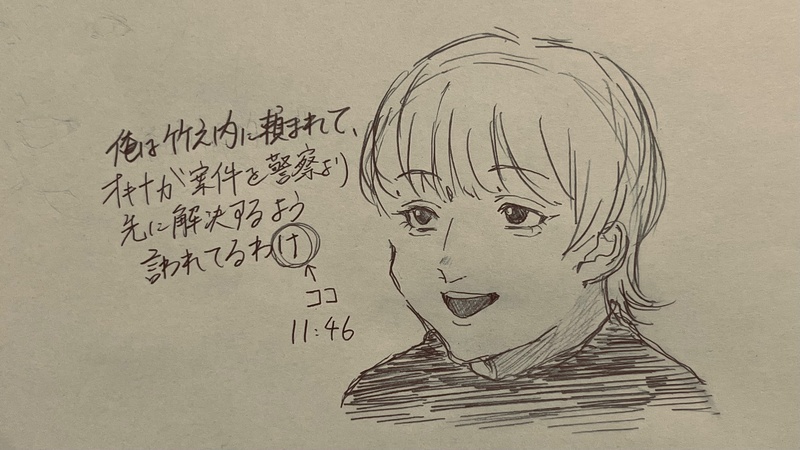 俺は竹之内に頼まれて、
オキナが案件を警察より
先に解決するよう
言われてるわけ
↑
ココ
11:46